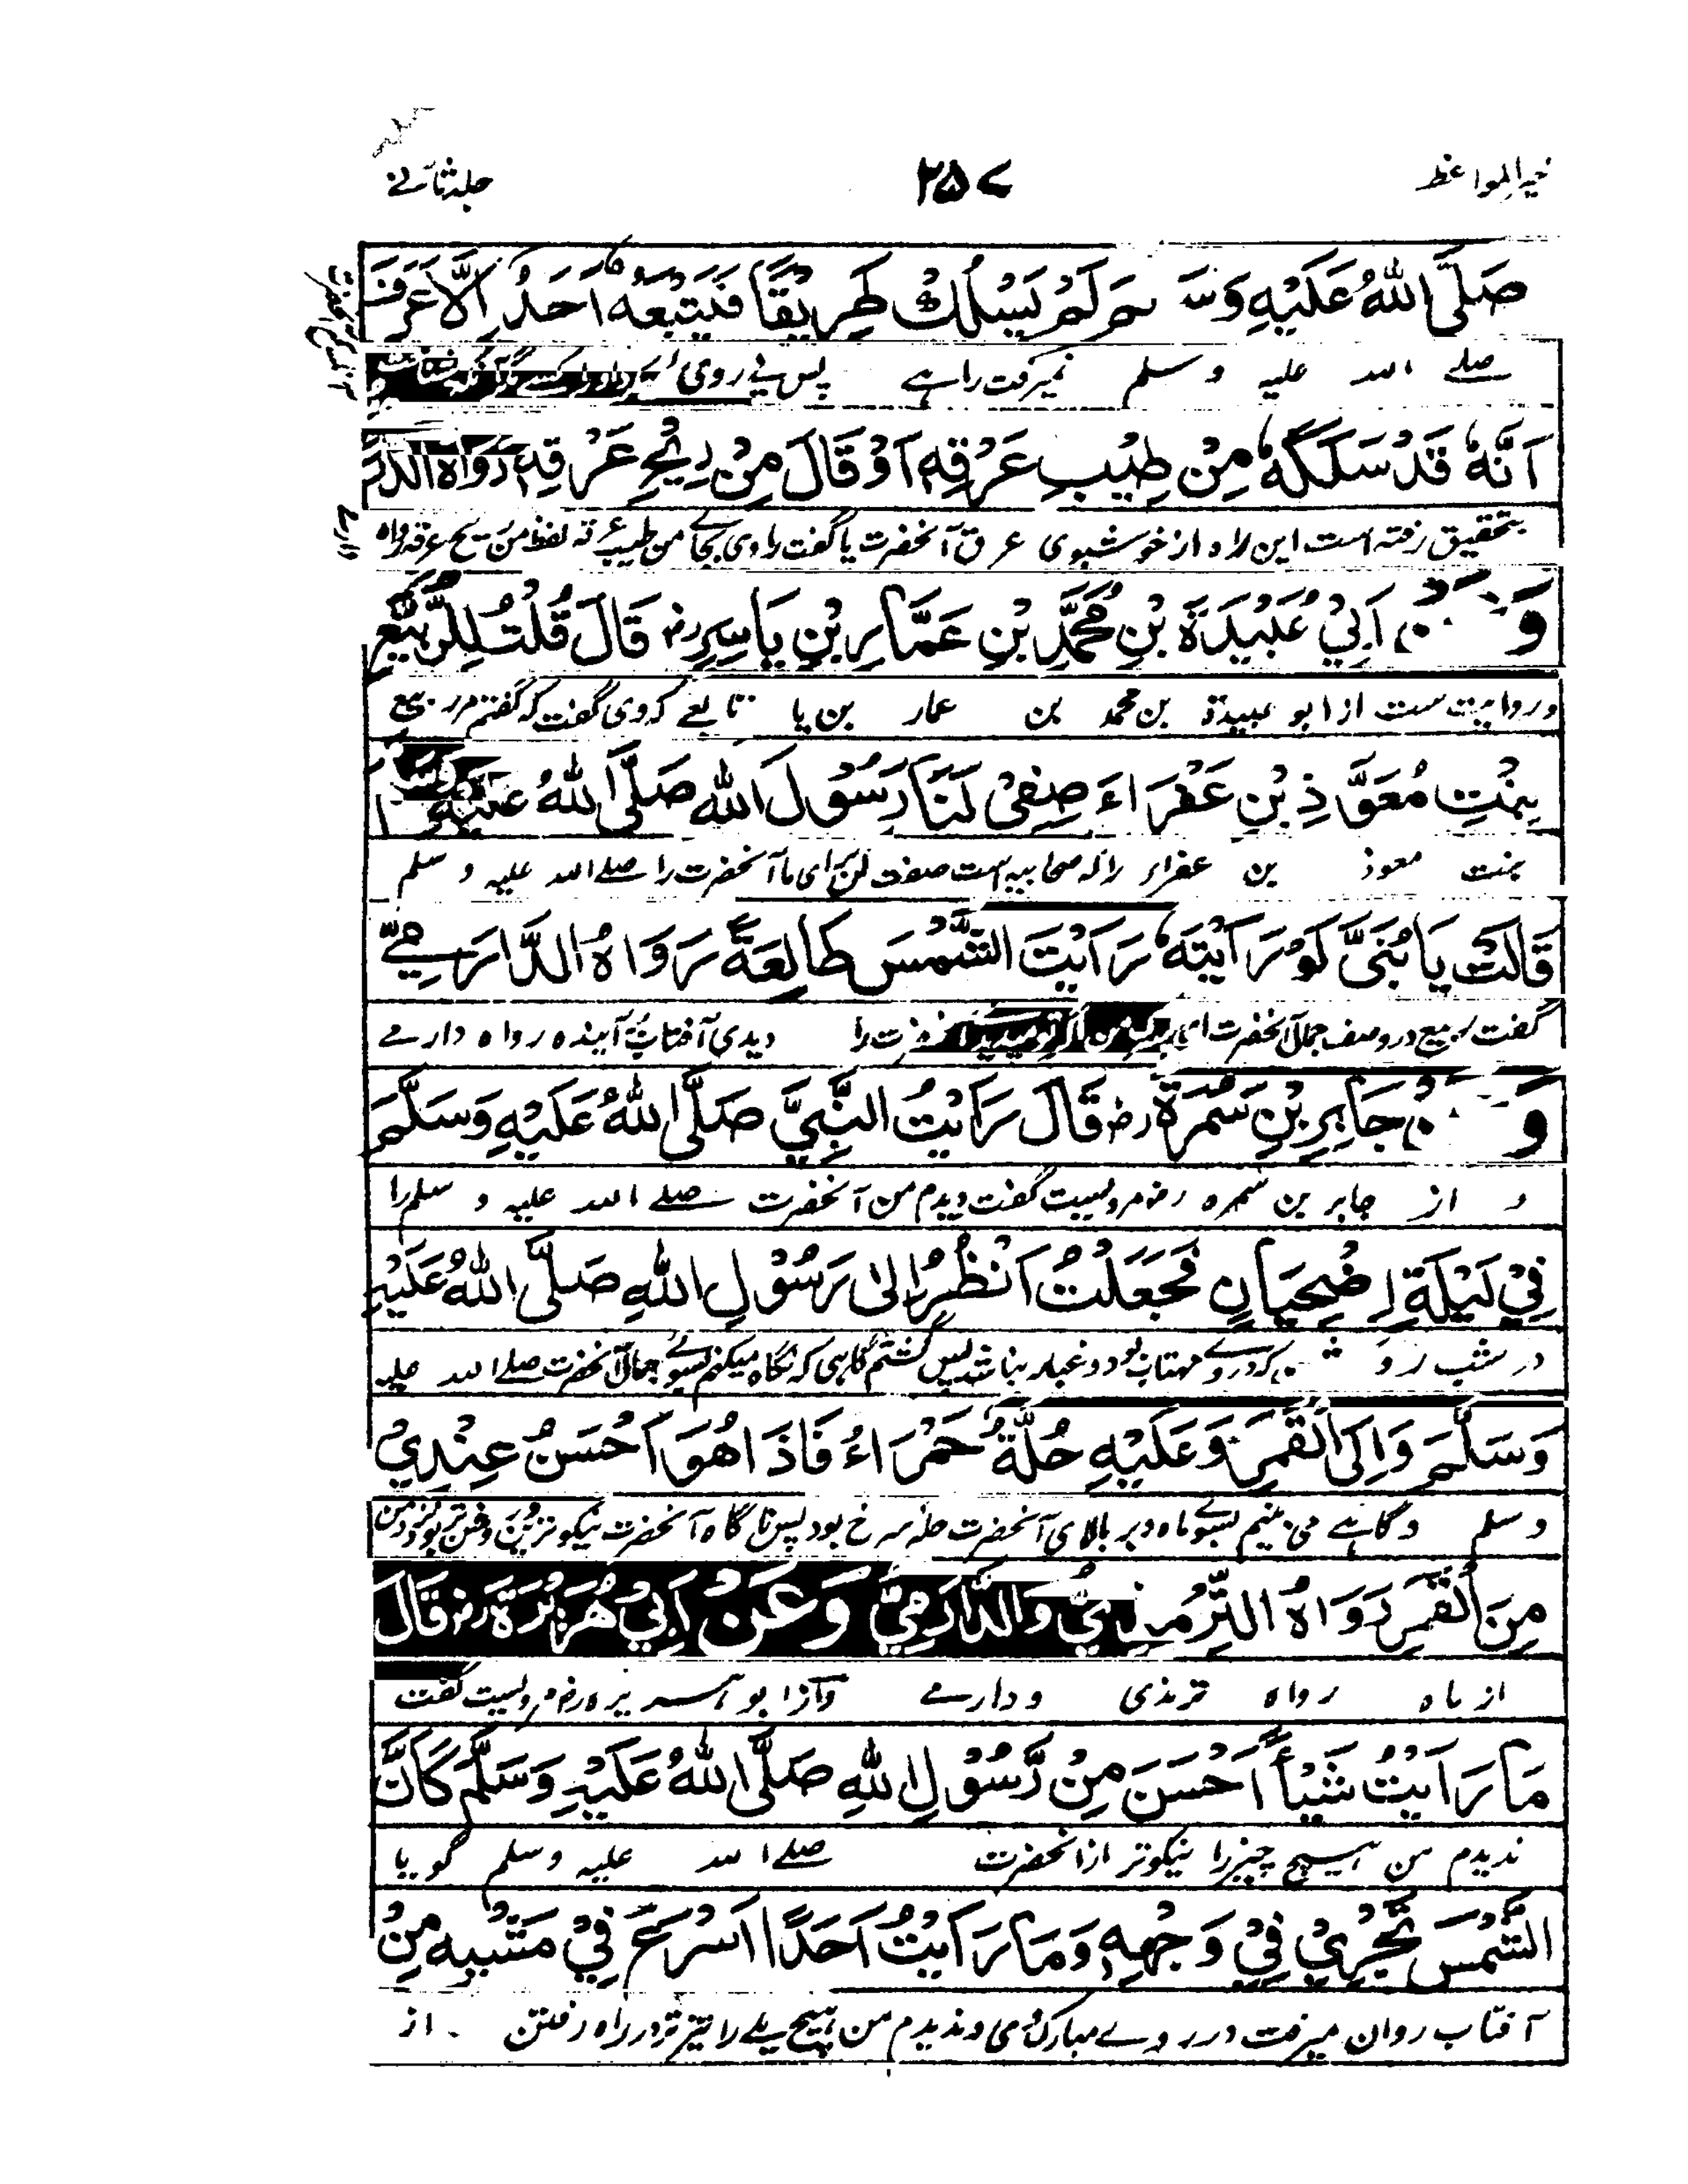 خیر المواعظ ۲۵۷ جلد ثانے
صَلَّى اللّٰهُ عَلَيْهِ وَسَ‍ـمَ لَمْ يَسْلُكْ طَرِيْقًا فَيَتْبَعُهٗ اَحَدٌ اِلَّا عَرَفَ
صلے اللہ علیہ و سلم نمیرفت راہے پس پے روی
اَنَّهٗ قَدْ سَلَكَهٗ مِنْ طِيْبِ عَرْقِهٖ اَوْ قَالَ مِنْ رِيْحِ عَرْقِهٖ رَوَاهُ الدَّ
بتحقیق رفتہ است این راہ از خوشبوی عرق آنحضرت یا گفت راوی بجاے من طیب عرقہ لفظ من ریح عرقہ رواہ
وَ اَبِيْ عُبَيْدَةَ بْنِ مُحَمَّدِ بْنِ عَمَّارِ بْنِ يَاسِرٍ رض قَالَ قُلْتُ لِلرُّبَيِّعِ
و روایت ست از ابو عبیدة بن محمد بن عمار بن یا تابعے کہ وی گفت کہ گفتم مر ربیع
بِنْتِ مُعَوِّذِ بْنِ عَفْرَاءَ صِفِيْ لَنَا رَسُوْلَ اللّٰهِ صَلَّى اللّٰهُ عَلَيْهِ
بنت معوذ بن عفراء را کہ صحابیہ است صفت کن برای ما آنحضرت را صلے اللہ علیہ و سلم
قَالَتْ يَا بُنَيَّ لَوْ رَاَيْتَهٗ رَاَيْتَ الشَّمْسَ طَالِعَةً رَوَاهُ الدَّارَمِيُّ
گفت ربیع در وصف جمال آنحضرت ای حضرت را دیدی آفتاب آیندہ رواہ دارمے
وَ جَابِرِ بْنِ سَمُرَةَ رض قَالَ رَاَيْتُ النَّبِيَّ صَلَّى اللّٰهُ عَلَيْهِ وَسَلَّمَ
و از جابر بن سمرہ رض مرویست گفت دیدم من آنحضرت صلے اللہ علیہ و سلم را
فِيْ لَيْلَةٍ اِضْحِيَانٍ فَجَعَلْتُ اَنْظُرُ اِلٰى رَسُوْلِ اللّٰهِ صَلَّى اللّٰهُ عَلَيْهِ
در شب رو کہ دروے مہتاب بود و غبار نباشد پس گشتم گاہی کہ نگاہ میکنم بسوے جمال آنحضرت صلے اللہ علیہ
وَسَلَّمَ وَاِلَى الْقَمَرِ وَعَلَيْهِ حُلَّةٌ حَمْرَاءُ فَاِذَا هُوَ اَحْسَنُ عِنْدِيْ
و سلم و گاہے می بینم بسوے ماہ و بر بالای آنحضرت حلہ سرخ بود پس ناگاہ آنحضرت نیکوترین
مِنَ الْقَمَرِ رَوَاهُ التِّرْمِذِيُّ وَالدَّارَمِيُّ وَعَنْ اَبِيْ هُرَيْرَةَ رض قَالَ
از ماہ رواہ ترمذی و دارمے و از ابو ہریرہ رض مرویست گفت
مَا رَاَيْتُ شَيْأً اَحْسَنَ مِنْ رَّسُوْلِ اللّٰهِ صَلَّى اللّٰهُ عَلَيْهِ وَسَلَّمَ كَاَنَّ
ندیدم من ہیچ چیز را نیکوتر از آنحضرت صلے اللہ علیہ و سلم گویا
الشَّمْسَ تَجْرِيْ فِيْ وَجْهِهٖ وَمَا رَاَيْتُ اَحَدًا اَسْرَعَ فِيْ مَشْيِهٖ مِنْ
آفتاب روان میرفت در روے مبارک وی و ندیدم من ہیچ یکے را تیزتر در راہ رفتن از